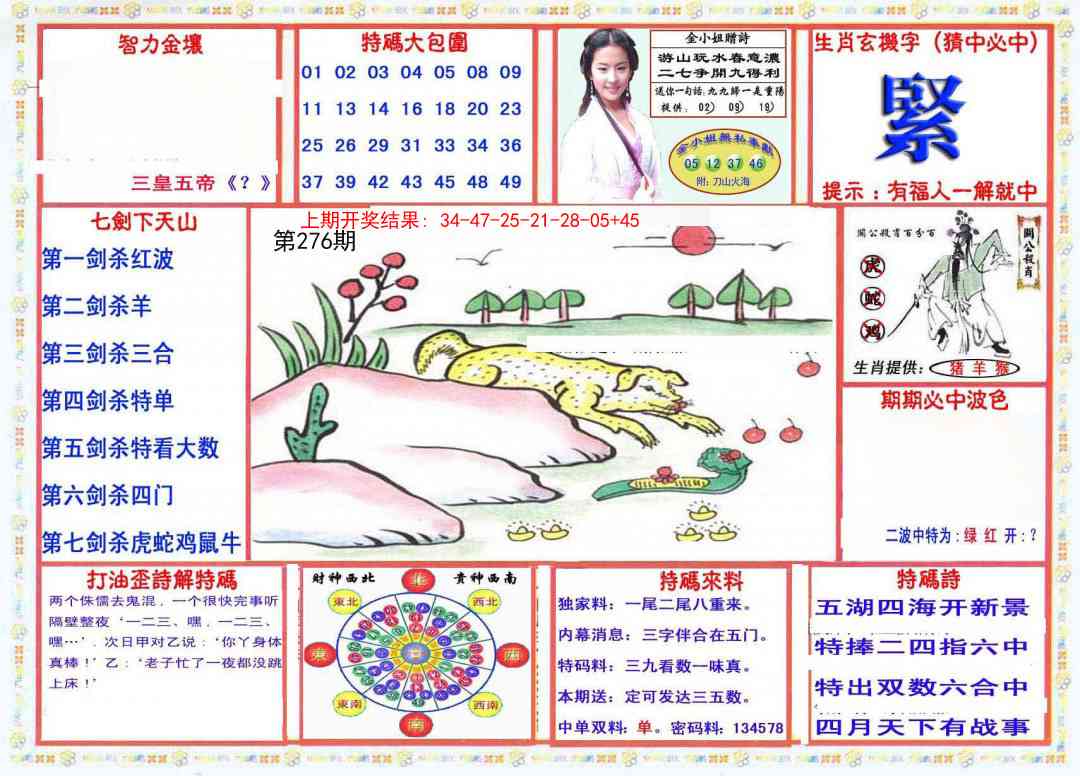 智力金壤
三皇五帝《？》
特碼大包圍
01 02 03 04 05 08 09
11 13 14 16 18 20 23
25 26 29 31 33 34 36
37 39 42 43 45 48 49
金小姐贈詩
游山玩水春意濃
二七爭開九得利
送你一句話:九九歸一是重陽
提供: 02) 09) 18)
金小姐無私奉獻
05 12 37 46
附: 刀山火海
生肖玄機字（猜中必中）
緊
提示：有福人一解就中
七劍下天山
第一剑杀红波
第二剑杀羊
第三剑杀三合
第四剑杀特单
第五剑杀特看大数
第六剑杀四门
第七剑杀虎蛇鸡鼠牛
上期开奖结果: 34-47-25-21-28-05+45
第276期
關公殺肖百分百
關公殺肖
虎
蛇
鸡
生肖提供: 猪 羊 猴
期期必中波色
二波中特为:绿 红 开:?
打油歪詩解特碼
两个侏儒去鬼混．一个很快完事听
隔壁整夜‘一二三、嘿．一二三、
嘿…’．次日甲对乙说：‘你丫身体
真棒！’乙：‘老子忙了一夜都没跳
上床！’
財神西北
貴神西南
北
東北
西北
東
西
東南
西南
南
特碼來料
独家料: 一尾二尾八重来。
内幕消息: 三字伴合在五门。
特码料: 三九看数一味真。
本期送: 定可发达三五数。
中单双料: 单。密码料: 134578
特碼詩
五湖四海开新景
特捧二四指六中
特出双数六合中
四月天下有战事